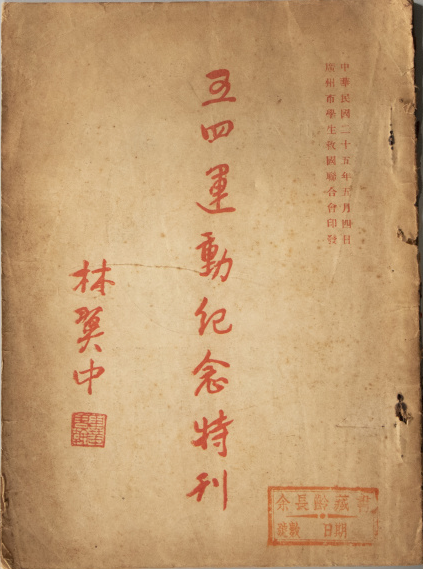 中華民國二十五年五月四日
廣州市學生救國聯合會印發
五四運動紀念特刊
林翼中
余長齡藏書
號數 日期